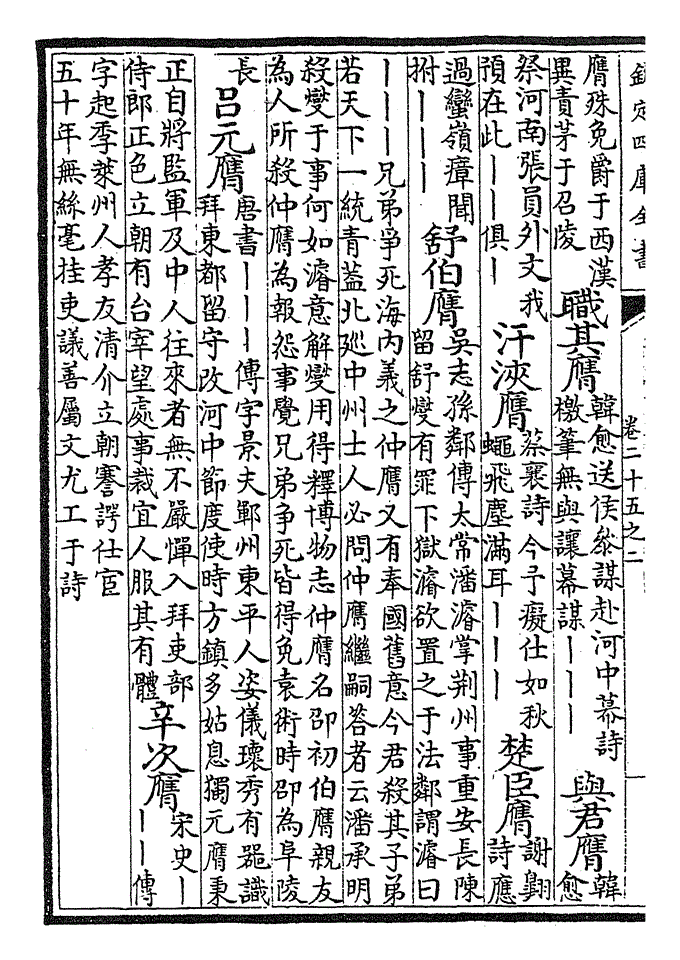 欽定四庫全書
卷二十五之二
膺殊免爵于西漢
異責茅于召陵
職其膺
韓愈送侯參謀赴河中幕詩
檄筆無與讓幕謀｜｜｜
與君膺
韓
愈
祭河南張員外文我
預在此｜｜俱｜
汗浹膺
蔡襄詩今予癡仕如秋
蠅飛塵滿耳｜｜｜
楚臣膺
謝翺
詩應
過蠻嶺瘴聞
拊｜｜｜
舒伯膺
吳志孫鄰傳太常潘濬掌荆州事重安長陳
留舒燮有罪下獄濬欲置之于法鄰謂濬曰
｜｜｜兄弟爭死海内義之仲膺又有奉國舊意今君殺其子弟
若天下一統青蓋北廵中州士人必問仲膺繼嗣答者云潘承明
殺燮于事何如濬意解燮用得釋博物志仲膺名卲初伯膺親友
為人所殺仲膺為報怨事覺兄弟争死皆得免袁術時卲為阜陵
長
吕元膺
唐書｜｜｜傳字景夫鄆州東平人姿儀瓌秀有噐識
拜東都留守改河中節度使時方鎮多姑息獨元膺秉
正自將監軍及中人往來者無不嚴憚入拜吏部
侍郎正色立朝有台宰望處事裁宜人服其有體
辛次膺
宋史｜
｜｜傳
字起季萊州人孝友清介立朝謇諤仕宦
五十年無絲毫挂吏議善屬文尤工于詩